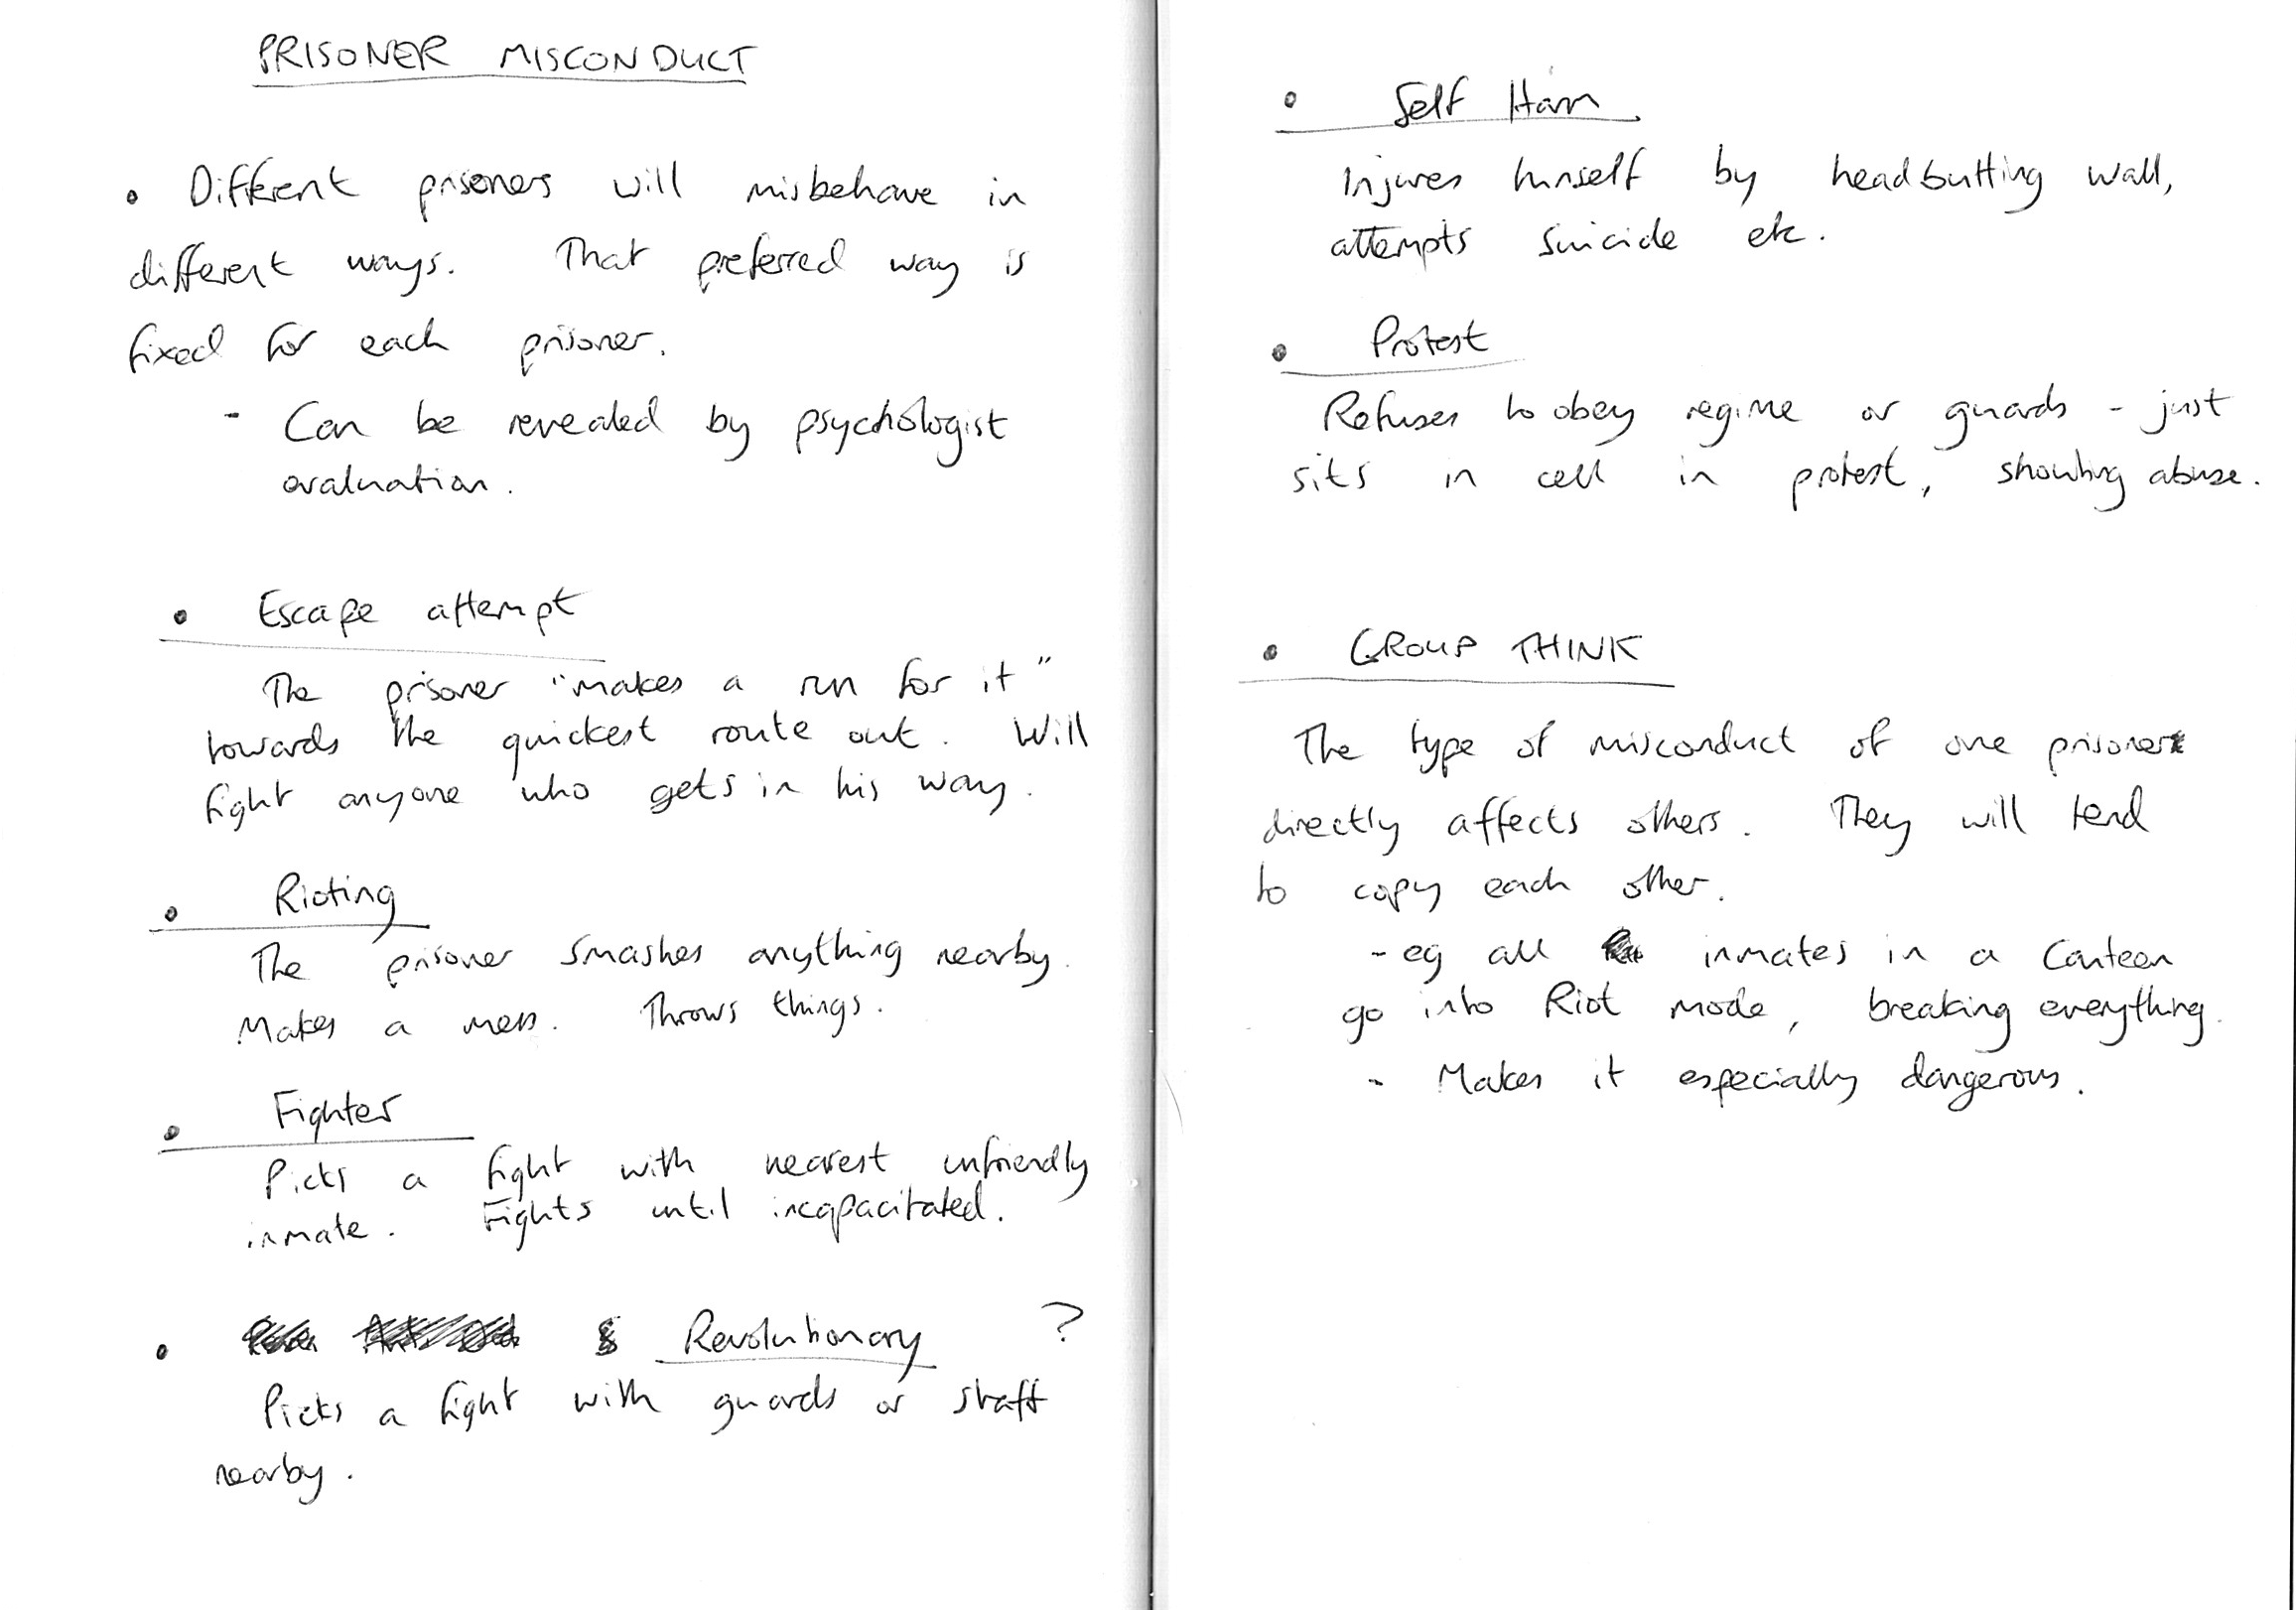 PRISONER MISCONDUCT
• Different prisoners will misbehave in
different ways. That preferred way is
fixed for each prisoner.
- Can be revealed by psychologist
evaluation.
• Escape attempt
The prisoner "makes a run for it"
towards the quickest route out. Will
fight anyone who gets in his way.
• Rioting
The prisoner smashes anything nearby.
Makes a mess. Throws things.
• Fighter
Picks a fight with nearest unfriendly
inmate. Fights until incapacitated.
• Revolutionary ?
Picks a fight with guards or staff
nearby.
• Self Harm
Injures himself by headbutting wall,
attempts suicide etc.
• Protest
Refuses to obey regime or guards - just
sits in cell in protest, shouting abuse.
• GROUP THINK
The type of misconduct of one prisoner
directly affects others. They will tend
to copy each other.
- eg all inmates in a Canteen
go into Riot mode, breaking everything.
- Makes it especially dangerous.